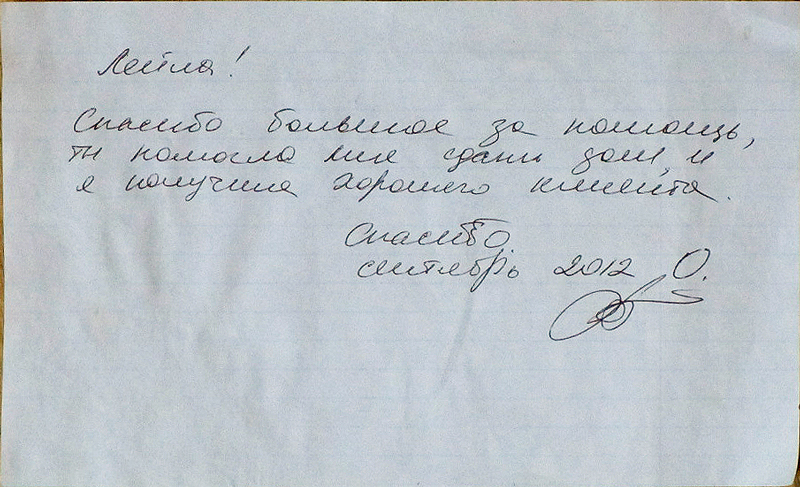 Лейла!
Спасибо большое за помощь,
ты помогла мне сдать дом, и
я получила хорошего клиента.
Спасибо.
сентябрь 2012 О.